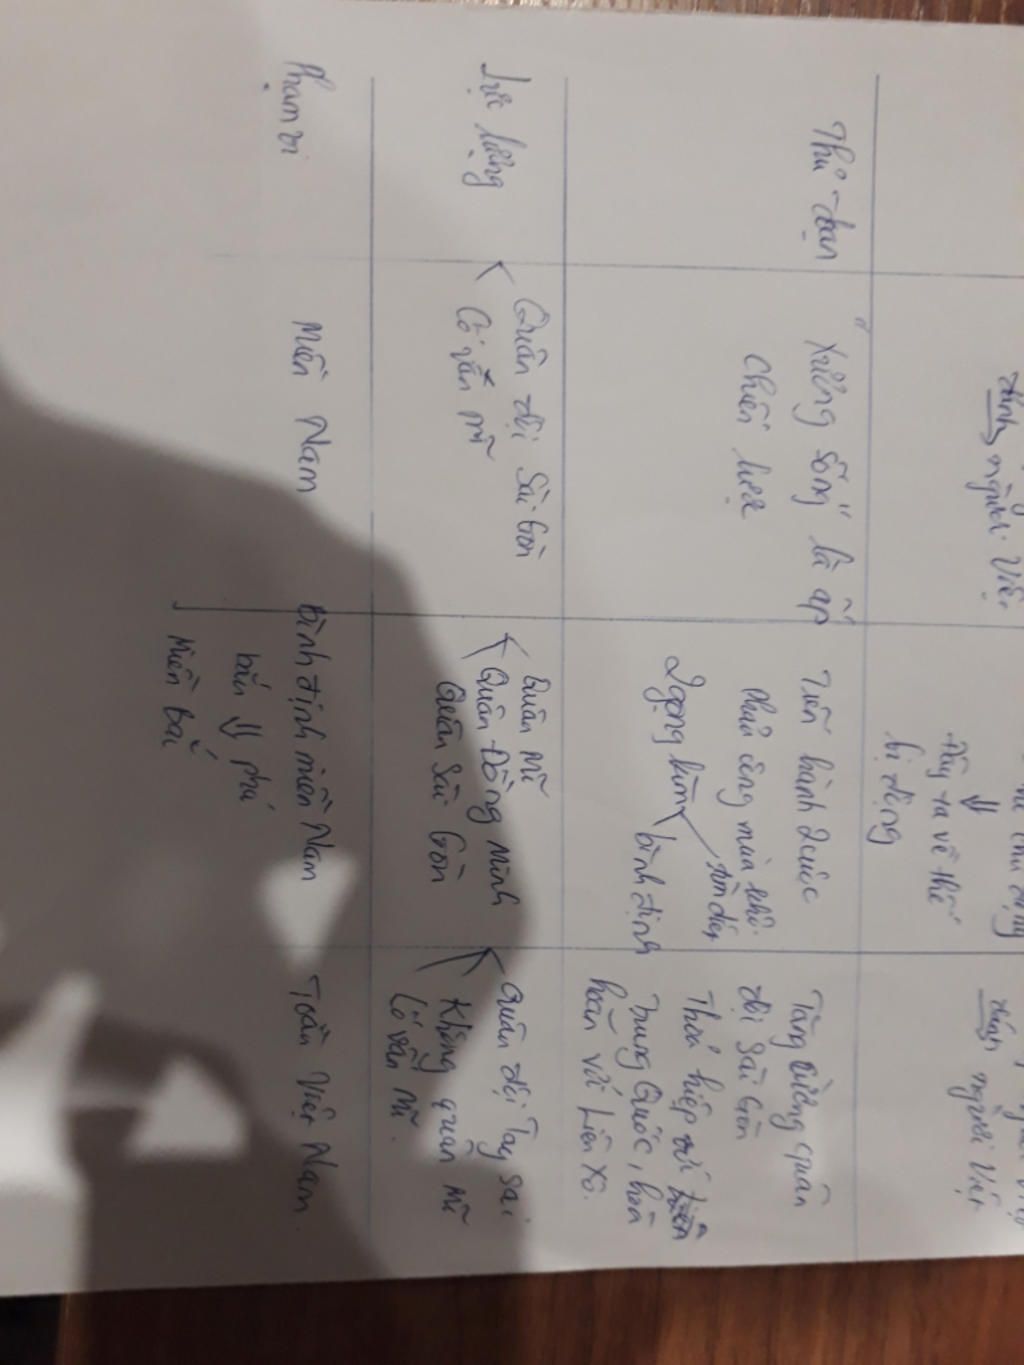 đánh người Việt
bị động
Đẩy ta về thế
đánh người Việt
Thủ đoạn
"Xương sống" là ấp
chiến lược
Tiến hành 2 cuộc
phản công mùa khô
2 gọng kìm
tìm diệt
bình định
Tăng cường quân
đội Sài Gòn
Thoả hiệp với
Trung Quốc, hoà
hoãn với Liên Xô.
Lực lượng
Quân đội Sài Gòn
Cố vấn Mĩ
Quân Mĩ
Quân Đồng Minh
Quân Sài Gòn
Quân đội Tay sai
Không quân Mĩ
Cố vấn Mĩ.
Phạm vi
Miền Nam
Bình định miền Nam
bắn ⇒ phá
Miền Bắc
Toàn Việt Nam.